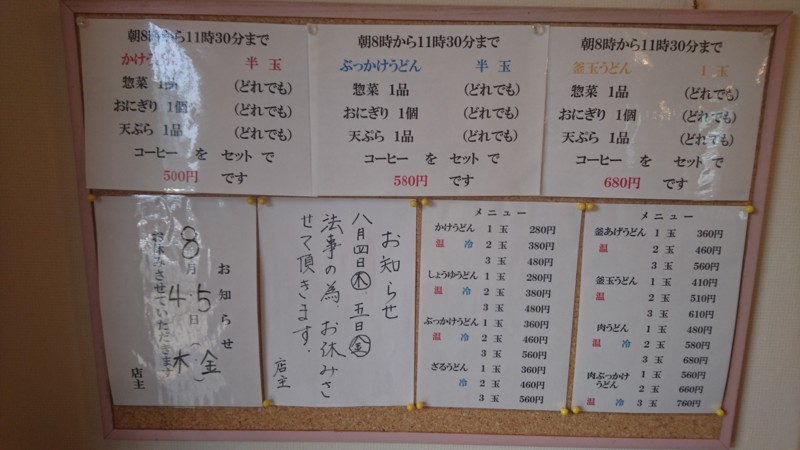 朝8時から11時30分まで
かけうどん 半玉
惣菜 1品 (どれでも)
おにぎり 1個 (どれでも)
天ぷら 1品 (どれでも)
コーヒー を セット で
500円 です
朝8時から11時30分まで
ぶっかけうどん 半玉
惣菜 1品 (どれでも)
おにぎり 1個 (どれでも)
天ぷら 1品 (どれでも)
コーヒー を セット で
580円 です
朝8時から11時30分まで
釜玉うどん 1玉
惣菜 1品 (どれでも)
おにぎり 1個 (どれでも)
天ぷら 1品 (どれでも)
コーヒー を セット で
680円 です
お知らせ
8月4.5日(木 金)
お休みさせていただきます
店主
お知らせ
八月四日木、五日金
法事の為、お休みさ
せて頂きます.
店主
メニュー
かけうどん 1 玉 280円
温 冷 2 玉 380円
3 玉 480円
しょうゆうどん 1 玉 280円
温 冷 2 玉 380円
3 玉 480円
ぶっかけうどん 1 玉 360円
温 冷 2 玉 460円
3 玉 560円
ざるうどん 1 玉 360円
冷 2 玉 460円
3 玉 560円
メニュー
釜あげうどん 1 玉 360円
温 2 玉 460円
3 玉 560円
釜玉うどん 1 玉 410円
温 2 玉 510円
3 玉 610円
肉うどん 1 玉 480円
温 冷 2 玉 580円
3 玉 680円
肉ぶっかけ 1 玉 560円
うどん 2 玉 660円
温 冷 3 玉 760円